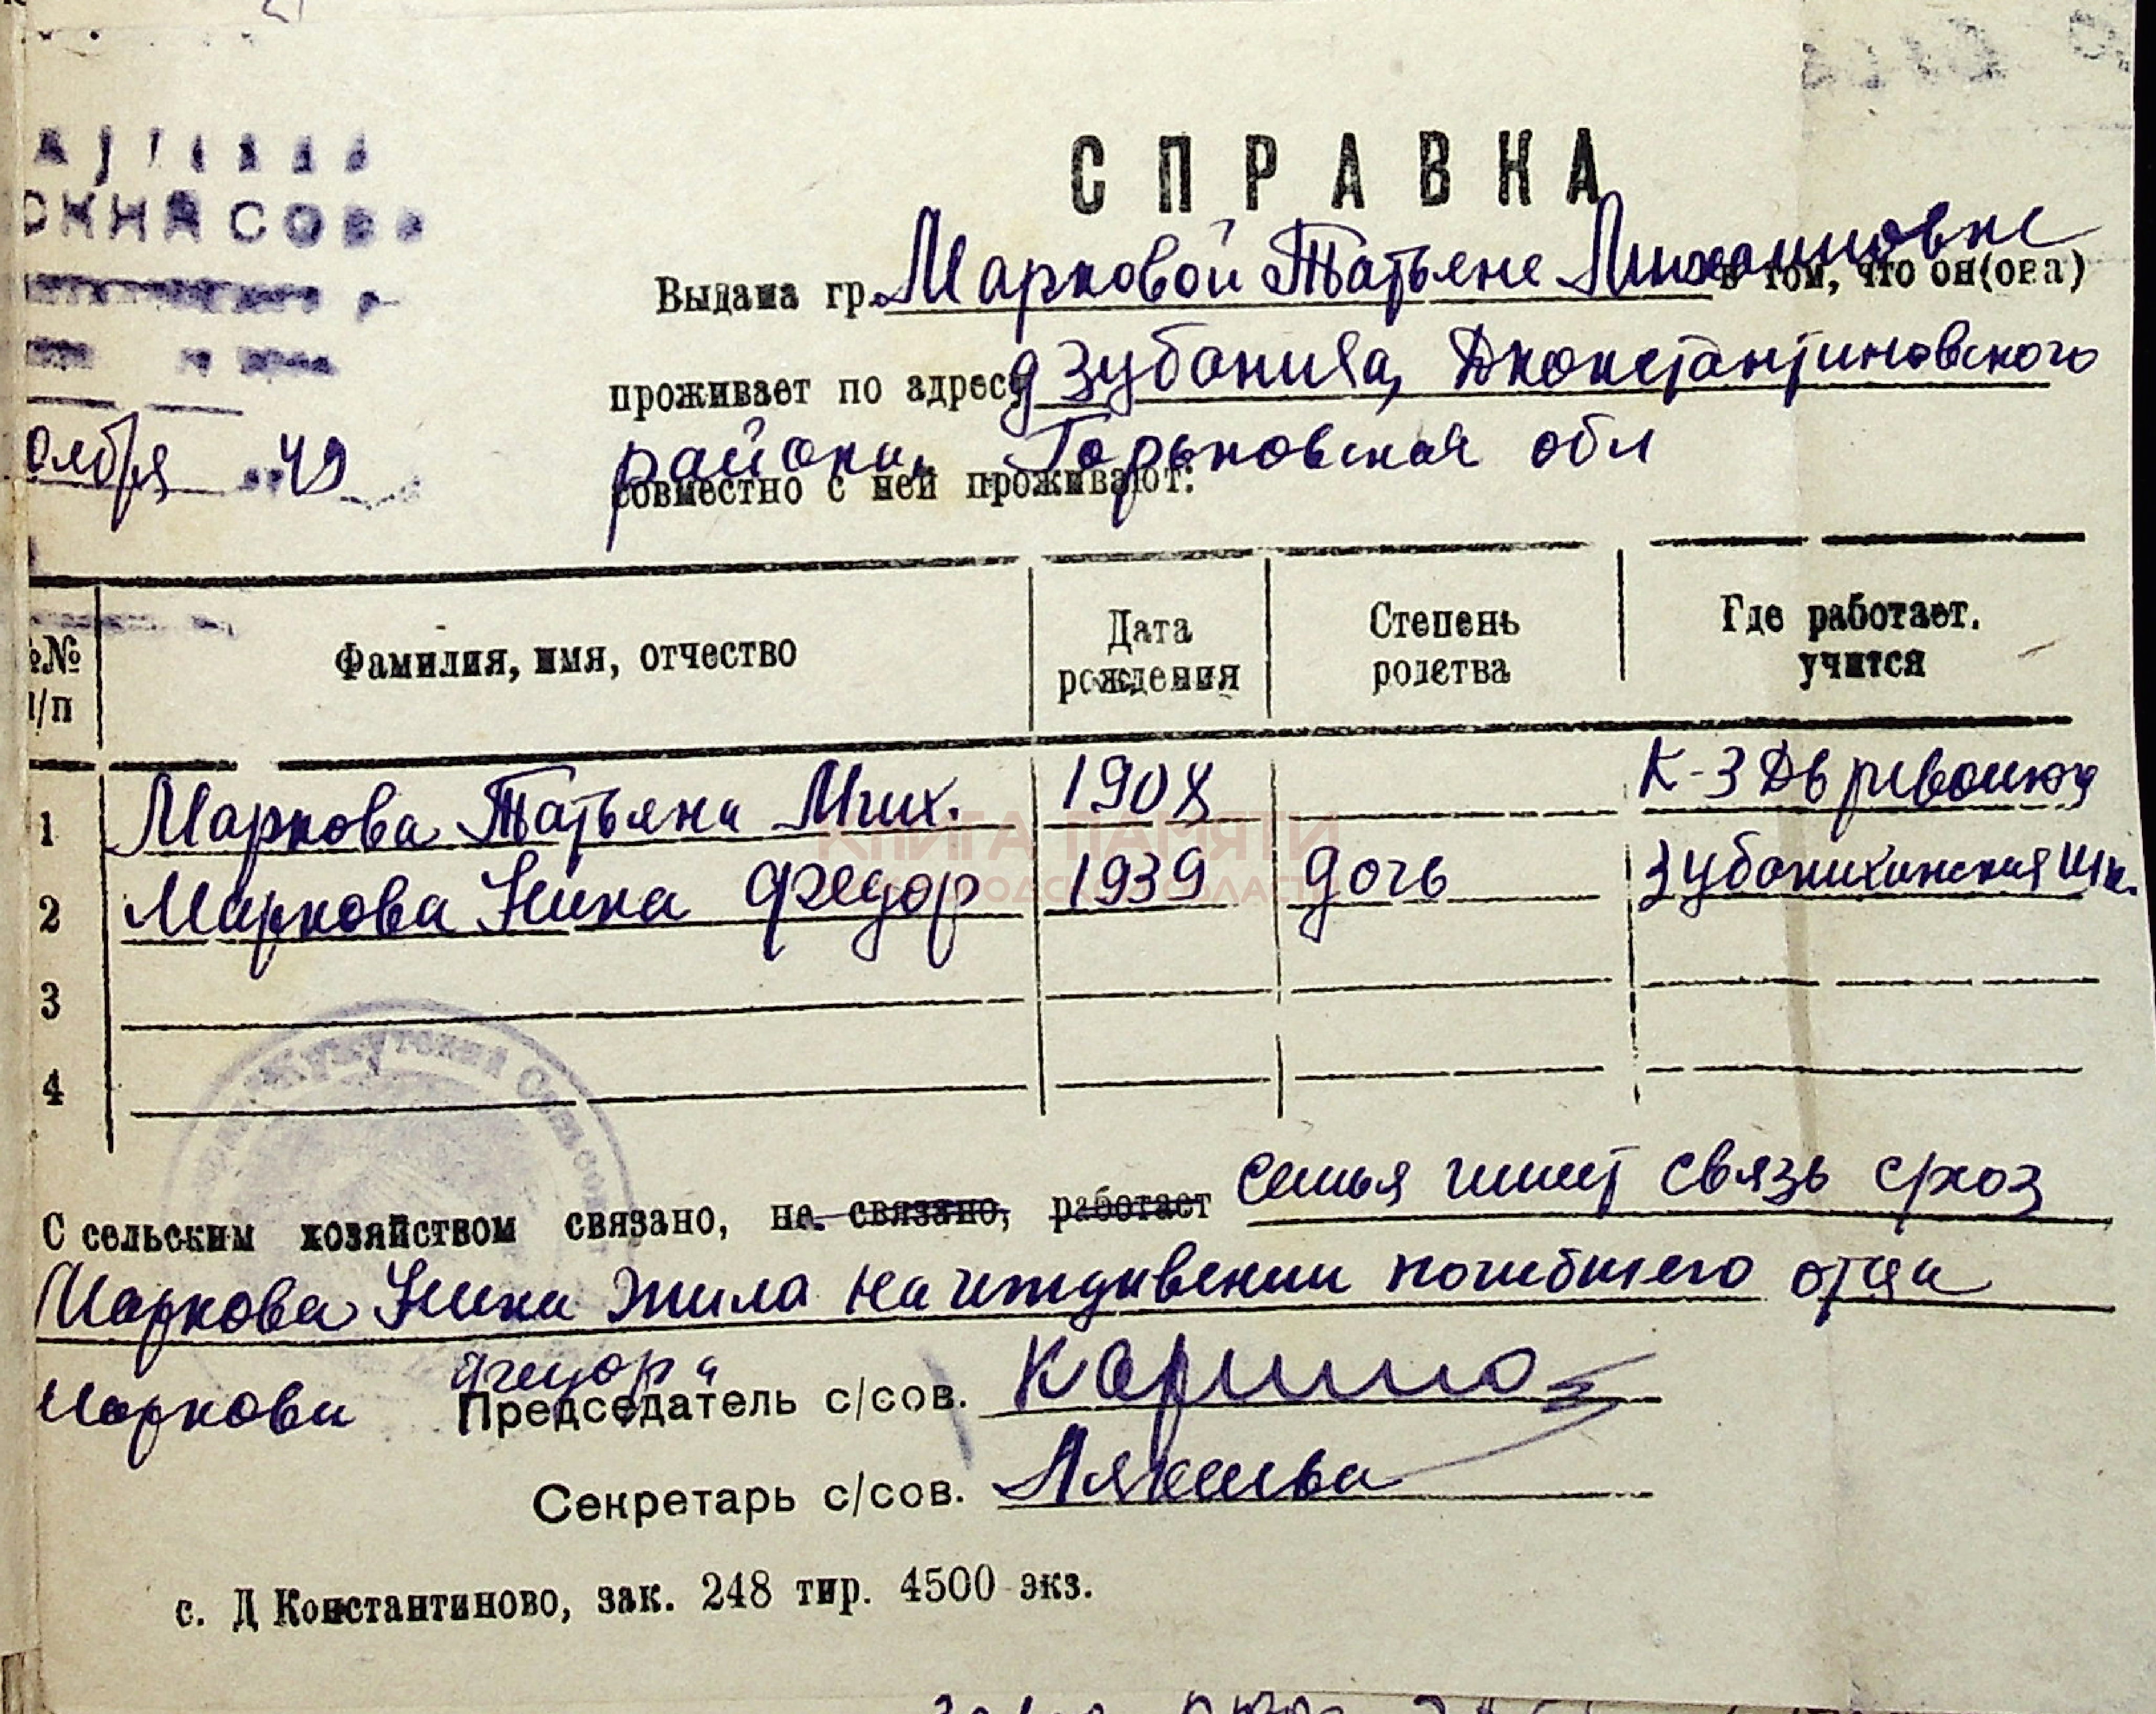 СПРАВКА
Выдана гр. Марковой Татьяне Михаиловне в том, что он(она)
проживает по адресу д Зубаниха, Дконстантиновского
района, Горьковская обл
совместно с ней проживают:
оября 49
№№ п/п Фамилия, имя, отчество Дата рождения Степень родства Где работает. учится
1 Маркова Татьяна Мих. 1908 К-З
2 Маркова Нина Федор 1939 дочь Зубанихинская шк.
3
4
С сельским хозяйством связано, не связано, работает семья имеет связь схоз
Маркова Нина жила на иждивении погибшего отца
Маркова Федора
Председатель с/сов.
Секретарь с/сов.
с. Д Константиново, зак. 248 тир. 4500 экз.
КНИГА ПАМЯТИ